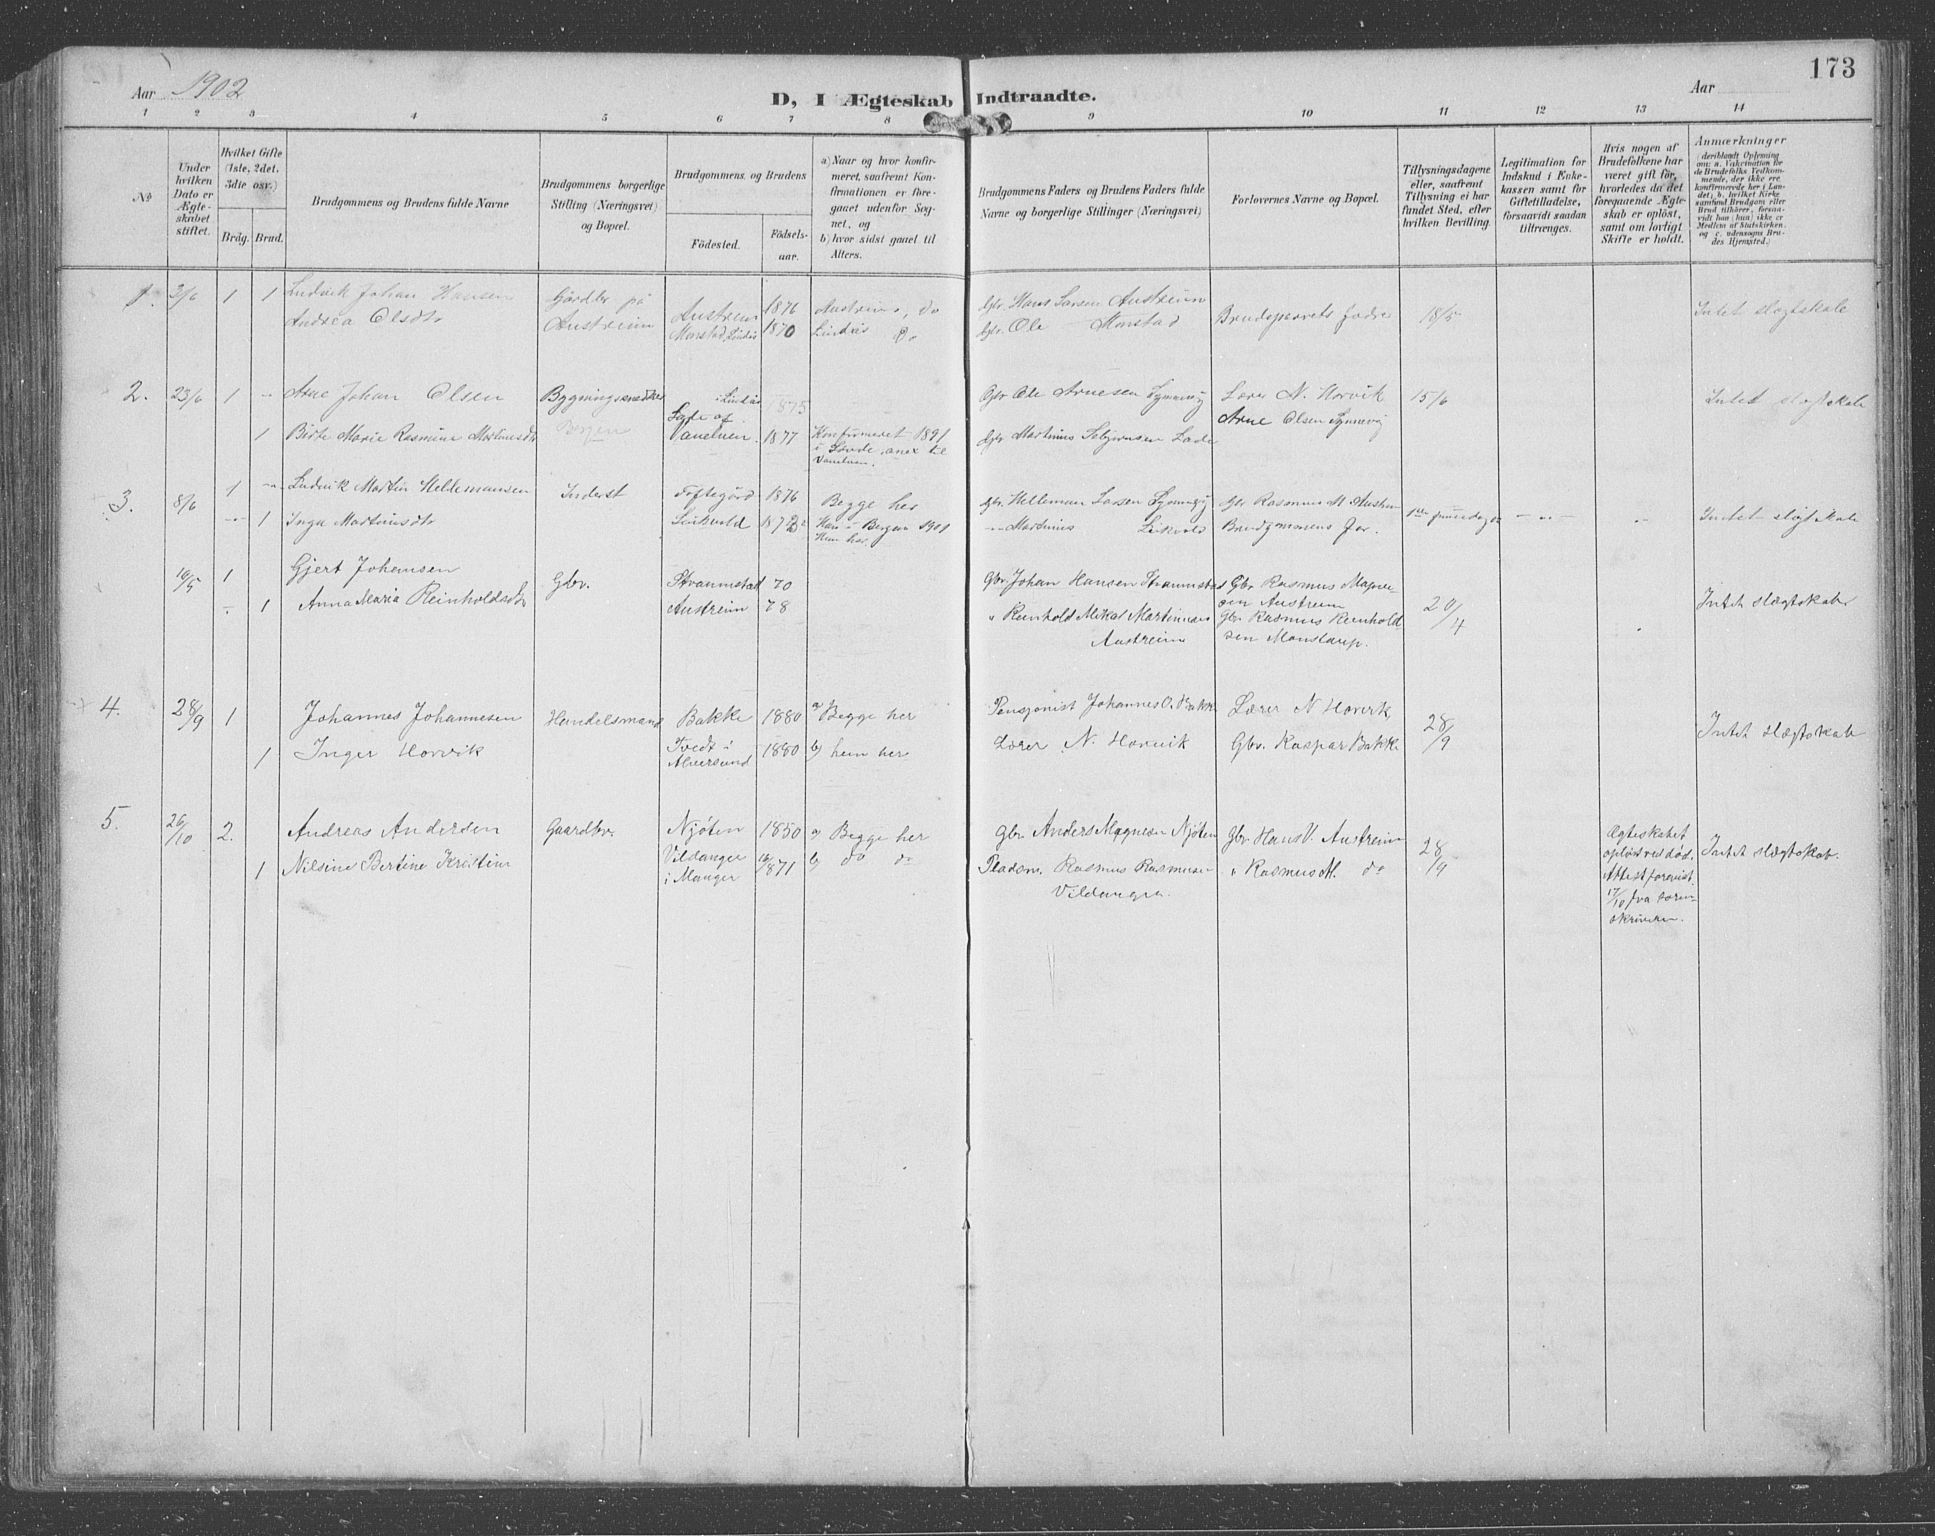 173
Aar 1902
Aar
D, I Ægteskab Indtraadte.
1 2 3 4 5 6 7 8 9 10 11 12 13 14
No
Under hvilken Dato er Ægteskabet stiftet.
Hvilket Gifte (1ste, 2det, 3die osv.)
Bräg. Brud.
Brudgommens og Brudens fulde Navne
Brudgommens borgerlige Stilling (Næringsvei) og Bopæl.
Brudgommens og Brudens
Födested.
Födselsaar.
a) Naar og hvor konfirmeret, saafremt Konfirmationen er foregaaet udenfor Sognet, og
b) hvor sidst gaaet til Alters.
Brudgommens Faders og Brudens Faders fulde Navne og borgerlige Stillinger (Næringsvei)
Forlovernes Navne og Bopæl.
Tillysningsdagene eller, saafremt Tillysning ei har fundet Sted, efter hvilken Bevilling.
Legitimation for Indskud i Enkekassen samt for Giftetilladelse, forsaavidt saadan tiltrænges.
Hvis nogen af Brudefolkene har været gift för, hvorledes da det foregaaende Ægteskab er oplöst, samt om lovligt Skifte er holdt.
Anmærkninger
1. 3/6 1 1 Ludvik Johan Hansen Gårdbr på Austreim 1876 Austreim, do Gbr Hans Larsen Austreim Brudeparrets fædre 18/5 Intet slægtskab
Andrea Olsdtr Austreim Monstad, Lindås 1870 Lindås do Gbr. Ole Monstad
2. 23/6 1 - Arne Johan Olsen Bygningssnedker i Lindås 1875 Gbr Ole Arnesen Synnevåg Lærer N. Horvik 15/6 Intet slægtskab
Bergen Arne Olsen Synnevåg
1 Birte Marie Rasmine Martinusdtr Vanelven. 1877 Konfirmeret 1891 Gbr. Martinus
i Sövde, anex til
Vanelven.
3. 8/6 1 Ludvik Martin Hellemansen Inderst Toftegård 1876 Begge her Gbr. Helleman Larsen Synnevåg Gbr Rasmus M Austreim Intet slægtskab
1 Inga Martinusdtr Leikvold Han i Bergen 1901 Martinus Leikvold Brudgommens far.
Hun her.
10/5 1 Gjert Johansen Gbr. Straumstad 70 Gbr. Johan Hansen Straumstad Gbr Rasmus Magne-
sen Austreim
1 Anna Maria Reinholdsdtr Austreim 78 " Reinhold Mikal Martinusen Gbr Rasmus Reinhold- 20/4 Intet slægtskab
Austreim sen Monslaup.
4. 28/9 1 Johannes Johannesen Handelsmand Bakke 1880 a) Begge her Pensjonist Johannes O. Bakke Lærer N Horvik 28/9 Intet slægtskab
1 Inger Horvik Tvedt i Alversund 1880 b) hun her Lærer N. Horvik Gbr. Kaspar Bakke
5. 26/10 2. Andreas Andersen Gaardbr. Njöten 1850 a) Begge her Gbr Anders Magnesen Njöten Gbr. Hans V. Austreim 28/9 Ægteskabet Intet slægtskab.
oplöst ved död.
1 Nilsine Bertine Kristine Vildanger i Manger 1871 b) do do Pladsm. Rasmus Rasmusen " Rasmus M. do Attest forevist
Vildanger. 17/10 fra soren-
skriveren.